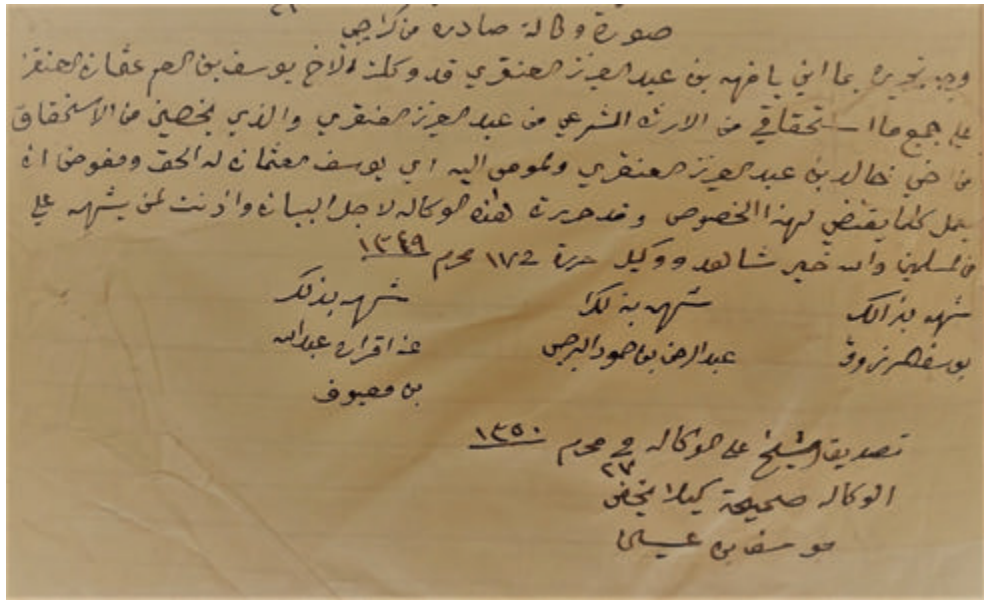 صورة وكالة صادره من كراچي
وجه تحريره بما اني يا فهد بن عبد العزيز العنقري قد وكلت الاخ يوسف بن العم عثمان العنقري
على جميع ما استحقاقي من الارث الشرعي من عبد العزيز العنقري والذي يخصني من الاستحقاق
من اخي خالد بن عبد العزيز العنقري والمومى اليه اي يوسف العثمان له الحق ومفوض ان
يعمل كلما يقتضي لهذا الخصوص وقد حررت هذه الوكاله لاجل البيان واذنت لمن يشهد علي
من المسلمين والله خير شاهد ووكيل حررة في ١٧ محرم ١٣٤٩
شهد بذالك شهد بذلك شهد بذلك
يوسف المرزوق عبد الرحمن بن حمود البرجس عن اقراره عبد الله
بن معيوف
تصديق الشيخ على الوكاله في محرم ١٣٥٠
٢٧
الوكاله صحيحة كيلا يخفى
يوسف بن عيسى